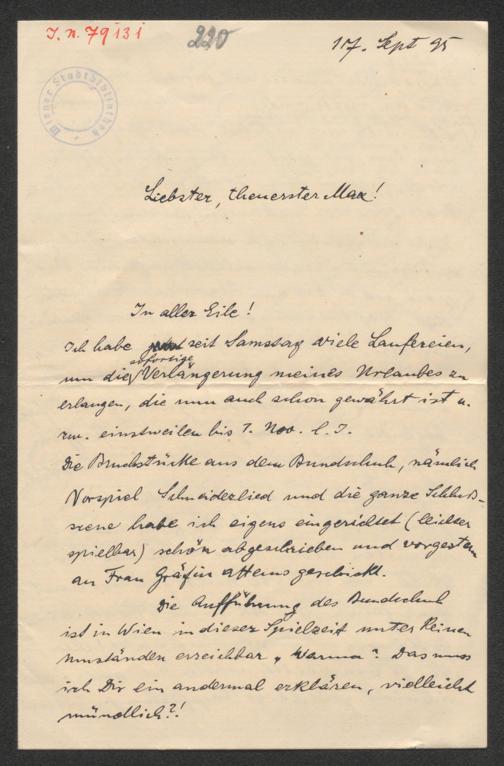 I. n. 79131
220
17. Sept 95
Wiener Stadtbibliothek
Liebster, theuerster Max!
In aller Eile!
Ich habe seit Samstag viele Laufereien,
um die sofortige Verlängerung meines Urlaubes zu
erlangen, die nun auch schon gewährt ist u.
zw. einstweilen bis 7. Nov. l. J.
Die Bruchstücke aus dem Bundschuh, nämlich
Vorspiel Schneiderlied und die ganze Schluß-
scene habe ich eigens eingerichtet (leichter
spielbar) schön abgeschrieben und vorgestern
an Frau Gräfin Attems geschickt.
Die Aufführung des Bundschuh
ist in Wien in dieser Spielzeit unter keinen
Umständen erreichbar „Warum"? Das muss
ich Dir ein andermal erklären, vielleicht
mündlich?!